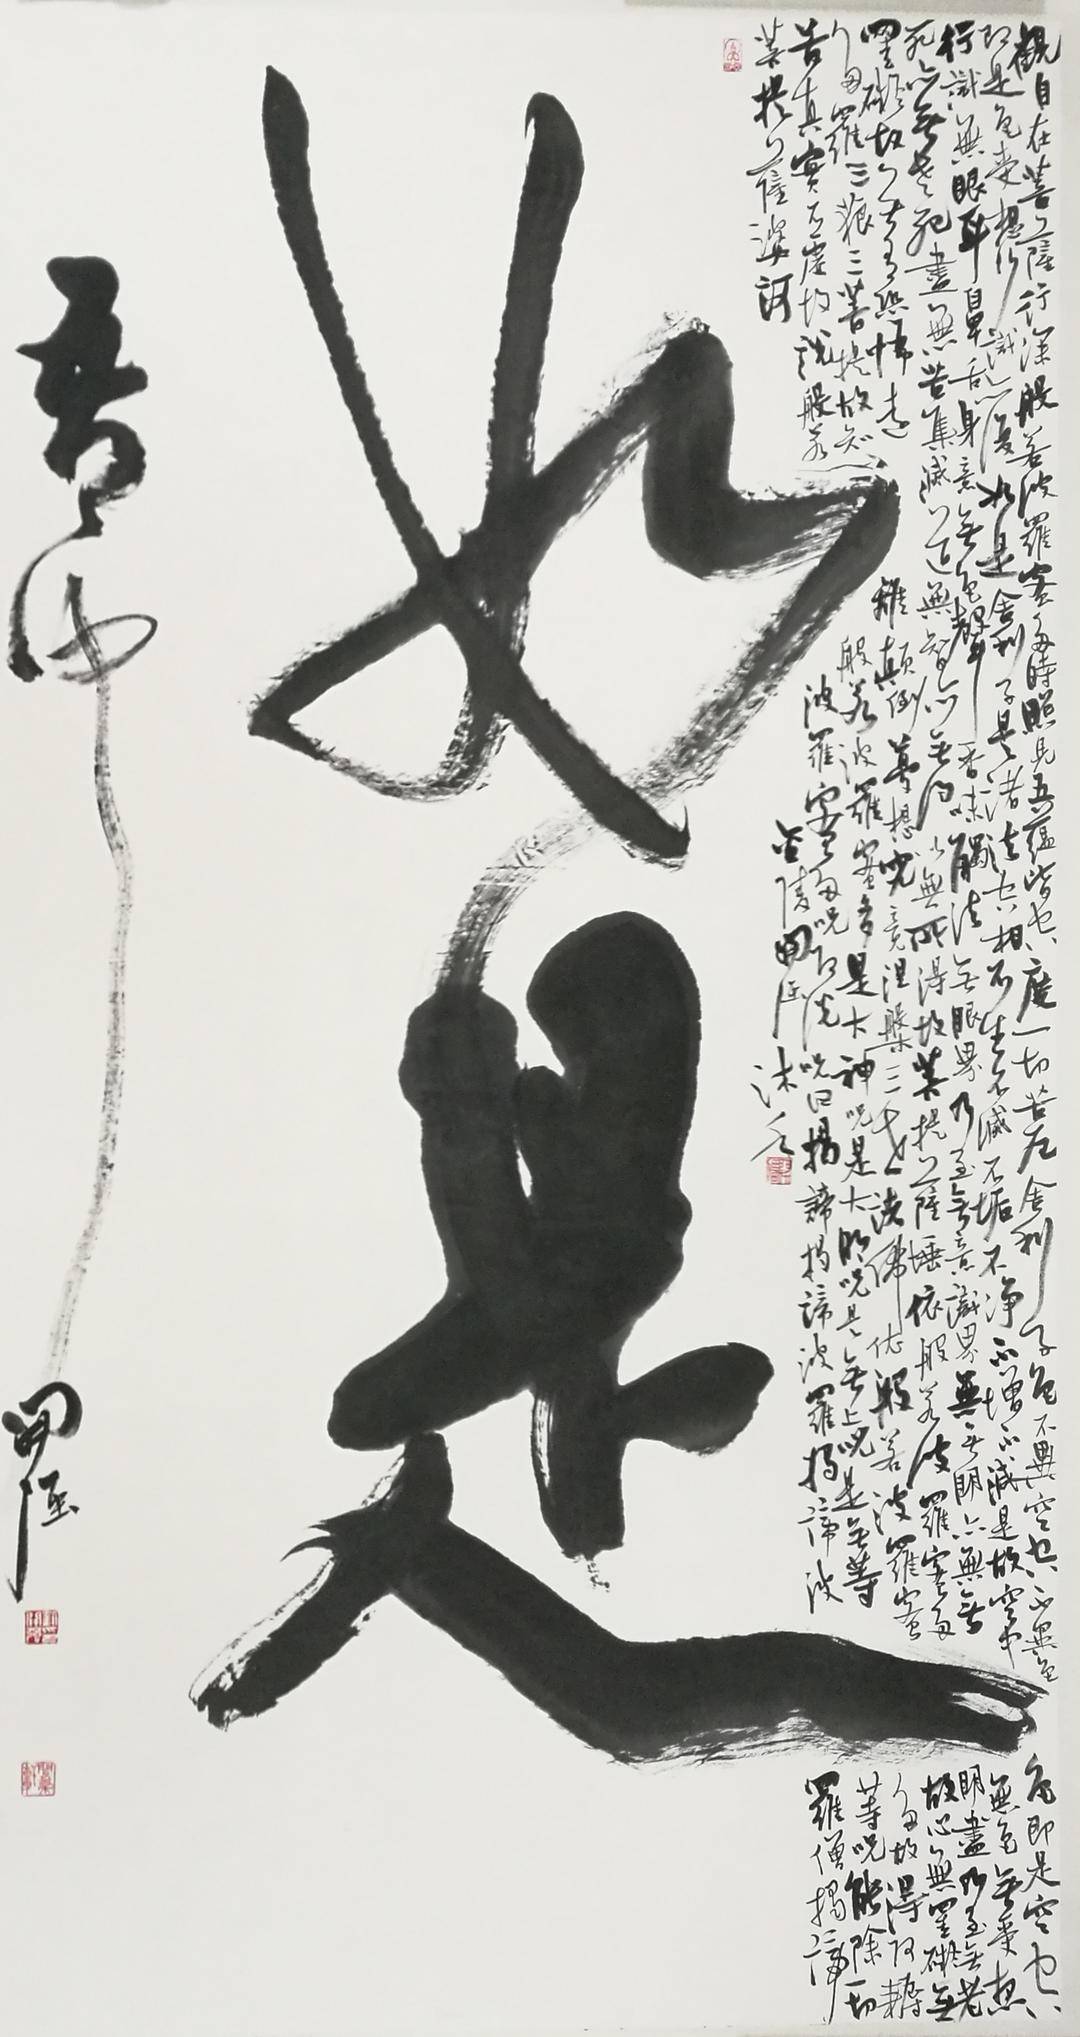 觀自在菩薩行深般若波羅蜜多時照見五蘊皆空度一切苦厄舍利子色不異空空不異色色即是空空
即是色受想行識亦復如是舍利子是諸法空相不生不滅不垢不淨不增不減是故空中無色無受想
行識無眼耳鼻舌身意無色聲香味觸法無眼界乃至無意識界無無明亦無無明盡乃至無老
死亦無老死盡無苦集滅道無智亦無得以無所得故菩提薩埵依般若波羅蜜多故心無罣礙無
罣礙故無有恐怖遠離顛倒夢想究竟涅槃三世諸佛依般若波羅蜜多故得阿耨
多羅三藐三菩提故知般若波羅蜜多是大神咒是大明咒是無上咒是無等等咒能除一切
苦真實不虛故說般若波羅蜜多咒即說咒曰揭諦揭諦波羅揭諦波羅僧揭諦
菩提薩婆訶
沐手
如是